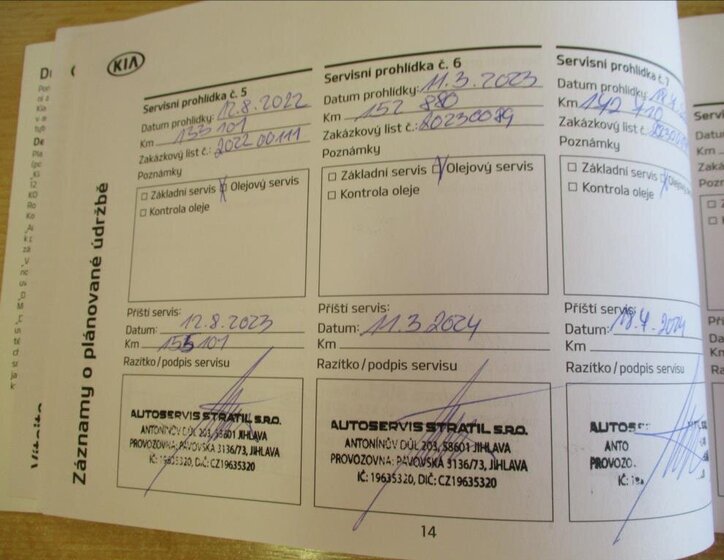 KIA
Záznamy o plánované údržbě
Servisní prohlídka č. 5
Datum prohlídky: 12.8.2022
Km 133 101
Zakázkový list č.: 2022 00111
Poznámky
□ Základní servis □ Olejový servis
□ Kontrola oleje
Příští servis:
Datum: 12.8.2023
Km 155 101
Razítko/podpis servisu
AUTOSERVIS STRATIL S.R.O.
ANTONÍNŮV DŮL 203, 58601 JIHLAVA
PROVOZOVNA: PÁVOVSKÁ 3136/73, JIHLAVA
IČ: 19635320, DIČ: CZ19635320
Servisní prohlídka č. 6
Datum prohlídky: 11.3.2023
Km 152 880
Zakázkový list č.: 20230089
Poznámky
□ Základní servis □ Olejový servis
□ Kontrola oleje
Příští servis:
Datum: 11.3 2024
Km
Razítko/podpis servisu
AUTOSERVIS STRATIL S.R.O.
ANTONÍNŮV DŮL 203, 58601 JIHLAVA
PROVOZOVNA: PÁVOVSKÁ 3136/73, JIHLAVA
IČ: 19635320, DIČ: CZ19635320
Servisní prohlídka č. 7
Datum prohlídky:
Km 192 710
Zakázkový list č.:
Poznámky
□ Základní servis □ Olejový servis
□ Kontrola oleje
Příští servis:
Datum: 18.4.2024
Km
Razítko/podpis servisu
AUTOSE
ANTO
PROVOZO
IČ: 19
14